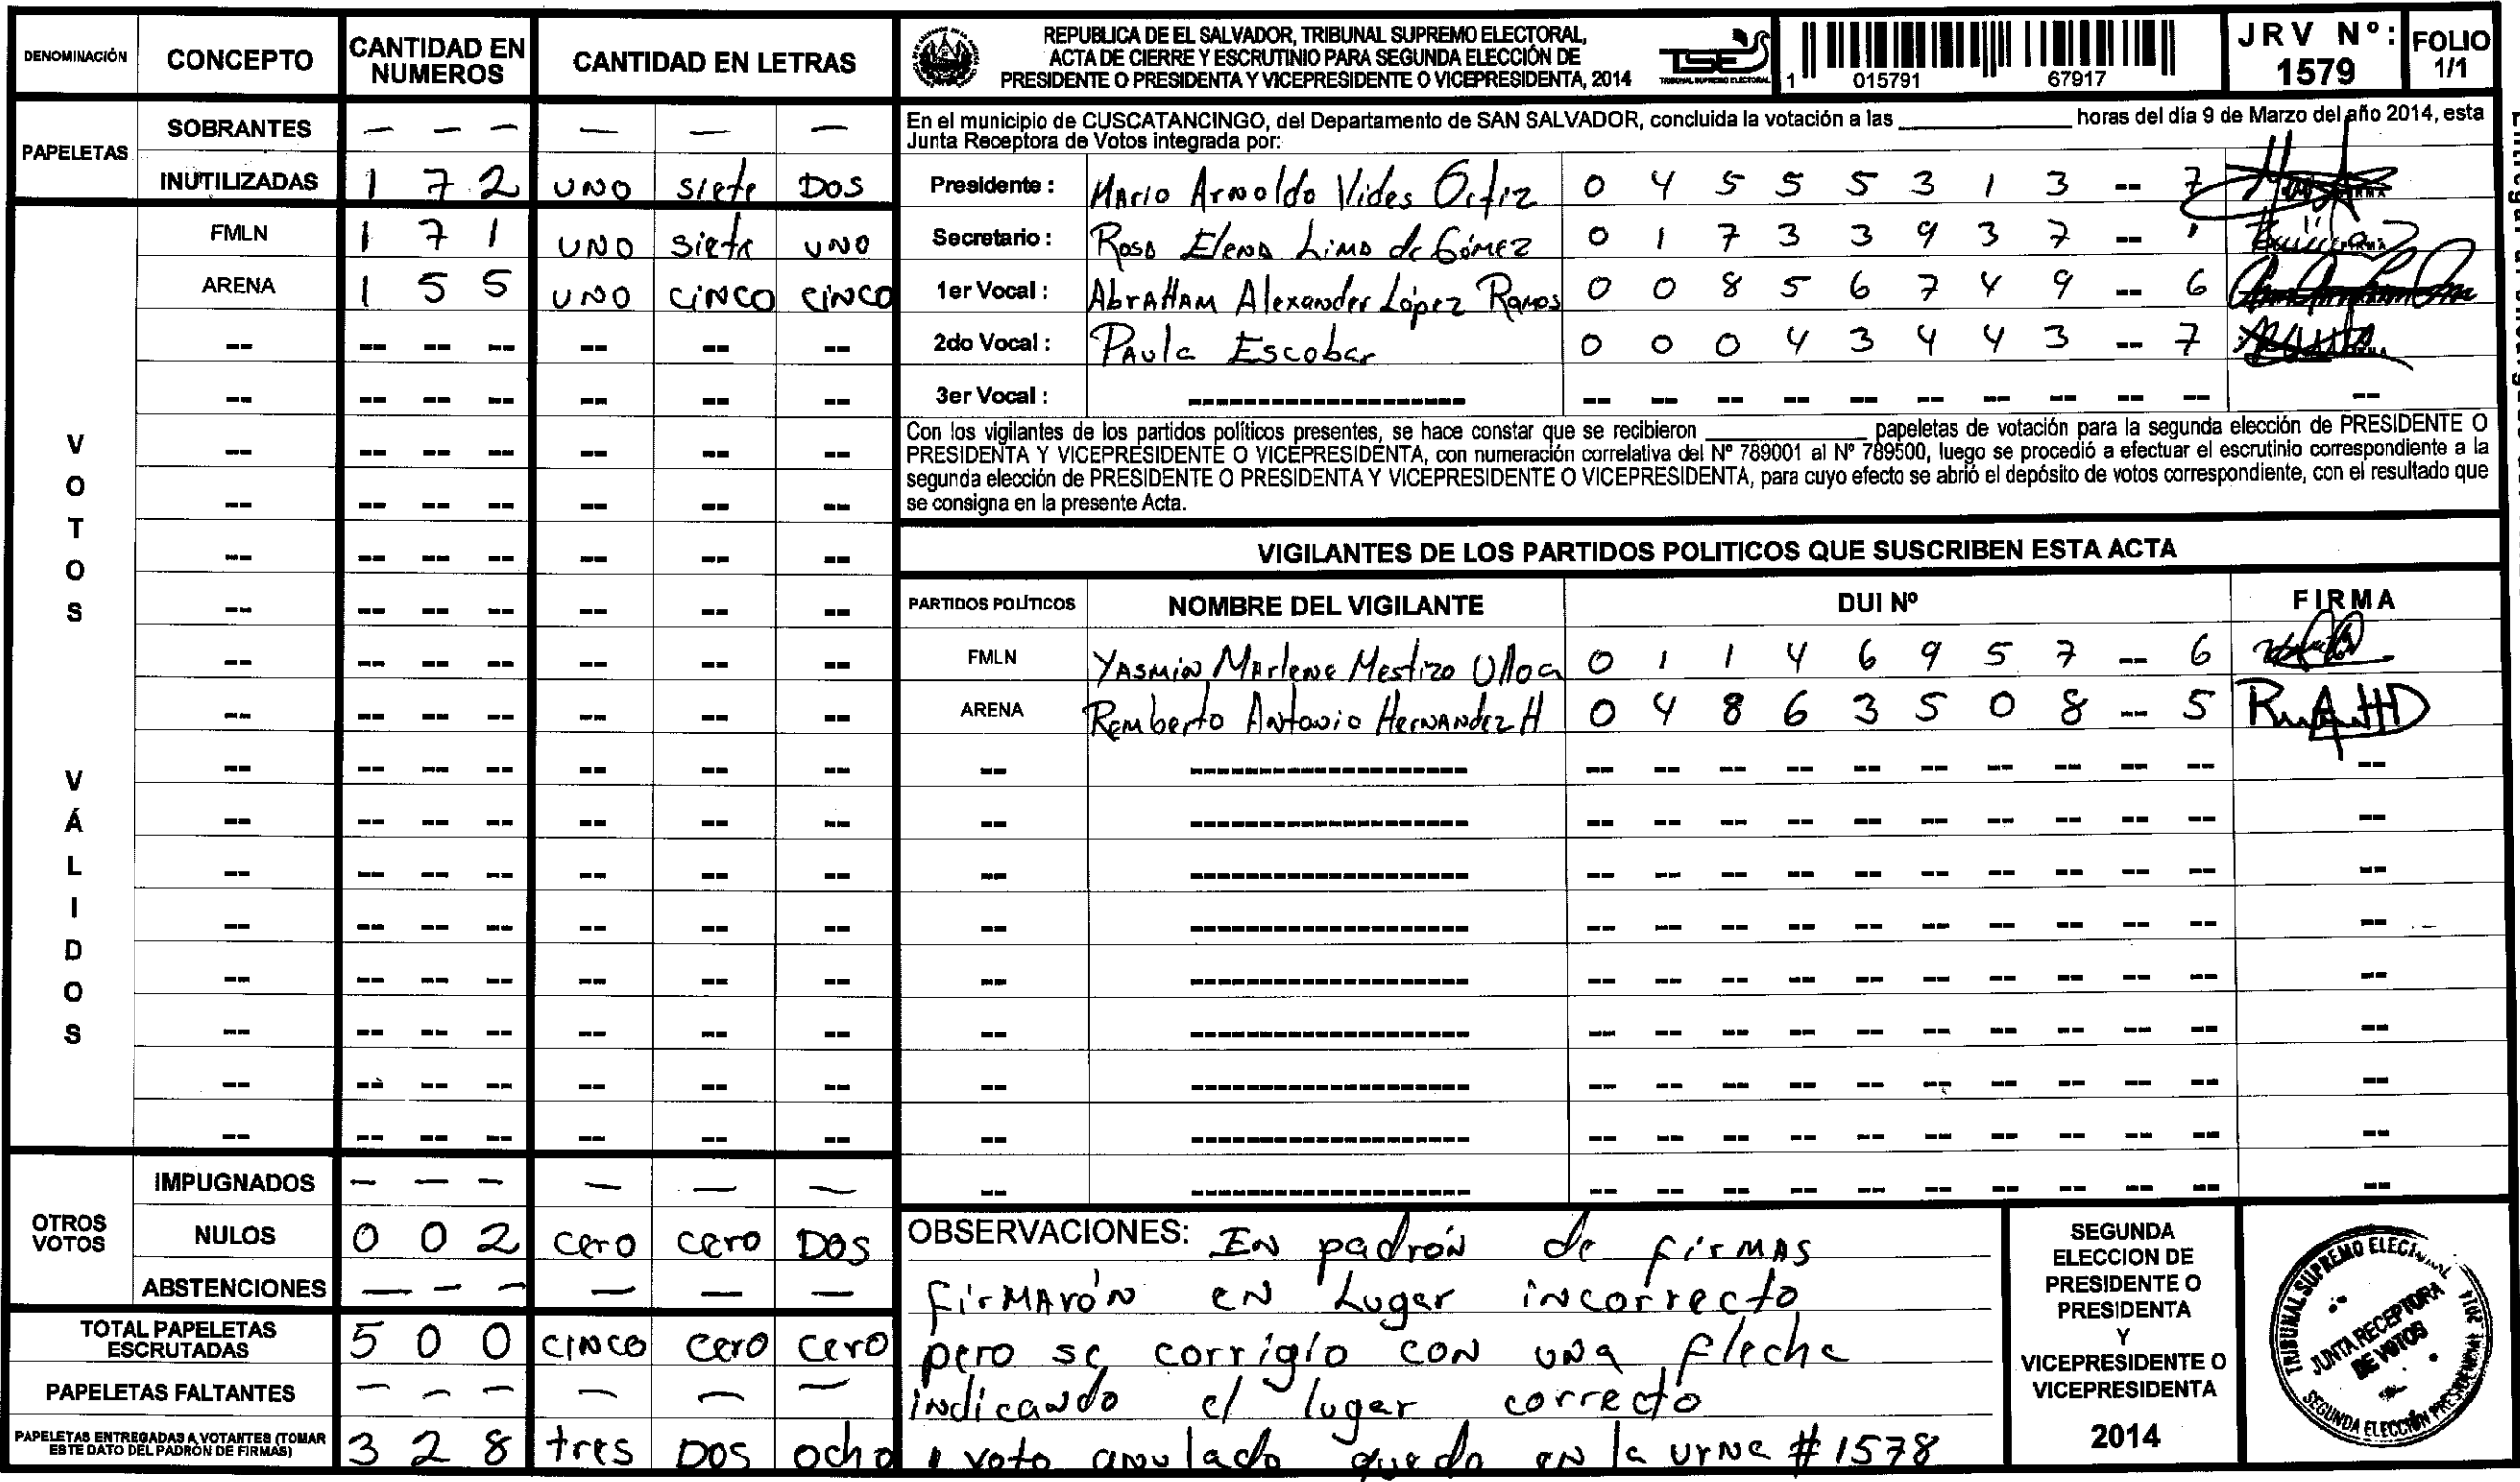 DENOMINACIÓN CONCEPTO CANTIDAD EN NUMEROS CANTIDAD EN LETRAS
PAPELETAS
SOBRANTES - - - - - -
INUTILIZADAS 1 7 2 UNO siete DOS
VOTOS VÁLIDOS
FMLN 1 7 1 UNO siete UNO
ARENA 1 5 5 UNO CINCO CINCO
OTROS VOTOS
IMPUGNADOS - - - - - -
NULOS 0 0 2 cero cero DOS
ABSTENCIONES - - - - - -
TOTAL PAPELETAS ESCRUTADAS 5 0 0 CINCO cero cero
PAPELETAS FALTANTES - - - - - -
PAPELETAS ENTREGADAS A VOTANTES (TOMAR ESTE DATO DEL PADRÓN DE FIRMAS) 3 2 8 tres DOS ocho
REPUBLICA DE EL SALVADOR, TRIBUNAL SUPREMO ELECTORAL,
ACTA DE CIERRE Y ESCRUTINIO PARA SEGUNDA ELECCIÓN DE
PRESIDENTE O PRESIDENTA Y VICEPRESIDENTE O VICEPRESIDENTA, 2014
TSE
TRIBUNAL SUPREMO ELECTORAL
1 015791 67917
JRV Nº: 1579
FOLIO 1/1
En el municipio de CUSCATANCINGO, del Departamento de SAN SALVADOR, concluida la votación a las ____ horas del día 9 de Marzo del año 2014, esta
Junta Receptora de Votos integrada por:
Presidente : Mario Arnoldo Vides Ortiz 0 4 5 5 5 3 1 3 -- 7
Secretario : Rosa Elena Lima de Gómez 0 1 7 3 3 9 3 7 --
1er Vocal : AbraHam Alexander López Ramos 0 0 8 5 6 7 4 9 -- 6
2do Vocal : Paula Escobar 0 0 0 4 3 4 4 3 -- 7
3er Vocal : --
Con los vigilantes de los partidos políticos presentes, se hace constar que se recibieron ____ papeletas de votación para la segunda elección de PRESIDENTE O
PRESIDENTA Y VICEPRESIDENTE O VICEPRESIDENTA, con numeración correlativa del Nº 789001 al Nº 789500, luego se procedió a efectuar el escrutinio correspondiente a la
segunda elección de PRESIDENTE O PRESIDENTA Y VICEPRESIDENTE O VICEPRESIDENTA, para cuyo efecto se abrió el depósito de votos correspondiente, con el resultado que
se consigna en la presente Acta.
VIGILANTES DE LOS PARTIDOS POLITICOS QUE SUSCRIBEN ESTA ACTA
PARTIDOS POLÍTICOS NOMBRE DEL VIGILANTE DUI Nº FIRMA
FMLN Yasmin Marlene Mestizo Ulloa 0 1 1 4 6 9 5 7 -- 6
ARENA Remberto Antonio Hernandez H 0 4 8 6 3 5 0 8 -- 5
OBSERVACIONES: En padrón de firmas
firmarón en Lugar incorrecto
pero se corrigío con una flecha
indicando el lugar correcto
1 voto anulado quedo en la urna #1578
SEGUNDA
ELECCION DE
PRESIDENTE O
PRESIDENTA
Y
VICEPRESIDENTE O
VICEPRESIDENTA
2014
TRIBUNAL SUPREMO ELECTORAL
JUNTA RECEPTORA
DE VOTOS
SEGUNDA ELECCIÓN PRESIDENCIAL 2014